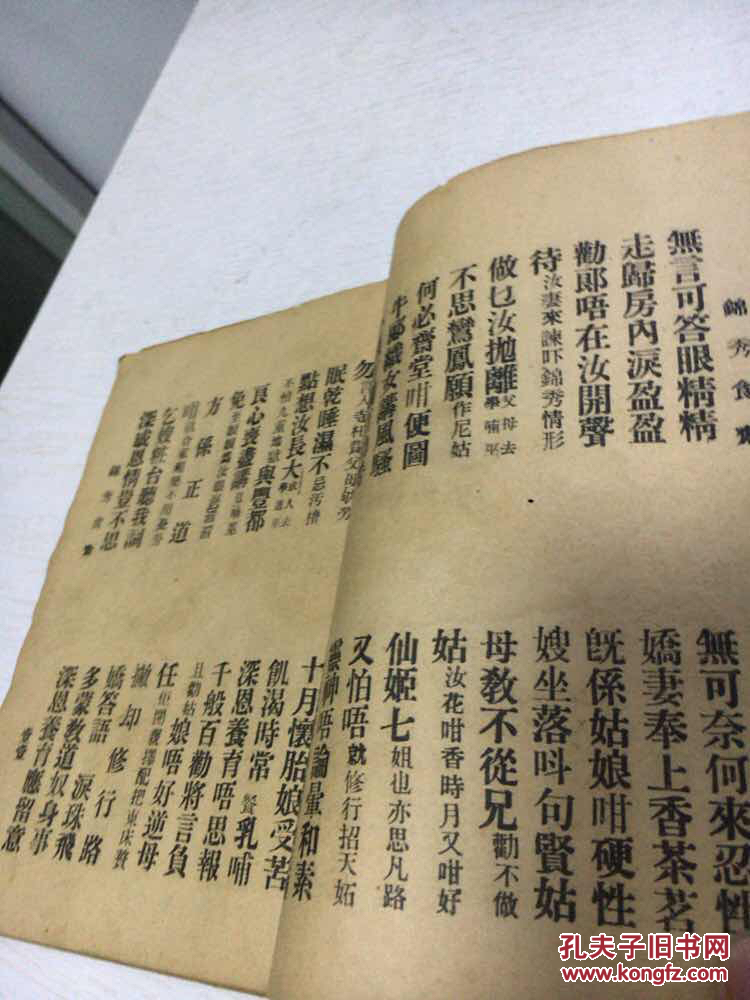 錦秀食齋
無言可答眼精精
走歸房內淚盈盈
勸郎唔在汝開聲
待汝妻來諫吓錦秀情形
做乜汝拋離父母去學喃巫
不思鸞鳳願作尼姑
何必齋堂咁便圖
牛郎織女講風騷
無可奈何來忍性
嬌妻奉上香茶茗
既係姑娘咁硬性
嫂坐落呌句賢姑
母教不從兄勸不做
姑汝花咁香時月又咁好
仙姬七姐也亦思凡路
又怕唔就修行招天妬
勿
眠乾睡濕不忌汚糟
點想汝長大成人去學
不怕九重地獄與豐都
良心喪盡講
免
方係正道
乞嫂粧台聽我詞
深感恩情豈不思
錦秀食齋
靈神唔論暈和素
十月懷胎娘受苦
飢渴時常餐乳哺
深恩養育唔思報
千般百勸將言負
且勸姑娘唔好逆母
任把東床贅
撇却修行路
嬌答語淚珠飛
多蒙教道奴身事
深恩養育應留意
孔夫子旧书网
www.kongfz.com